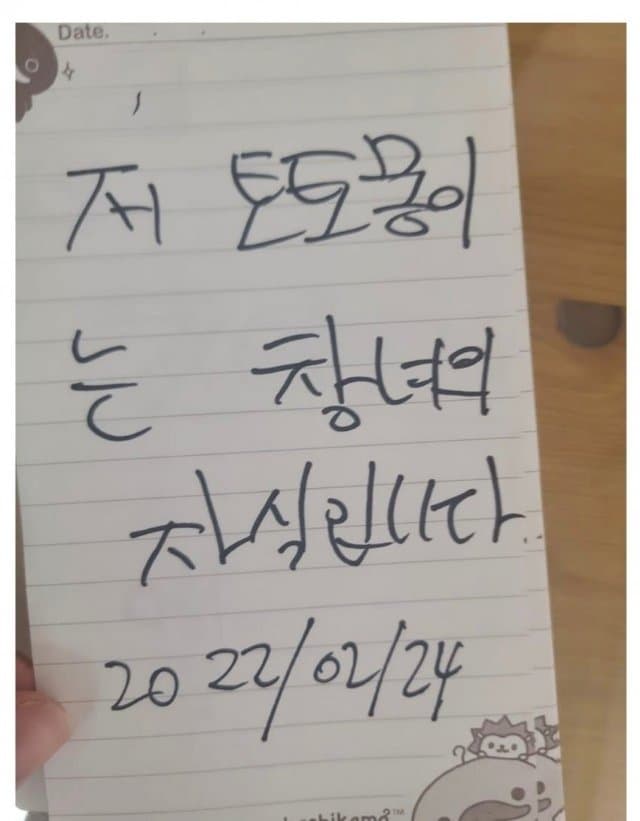 Date.
저 토도몽이
는 창녀의
자식입니다..
2022/02/24